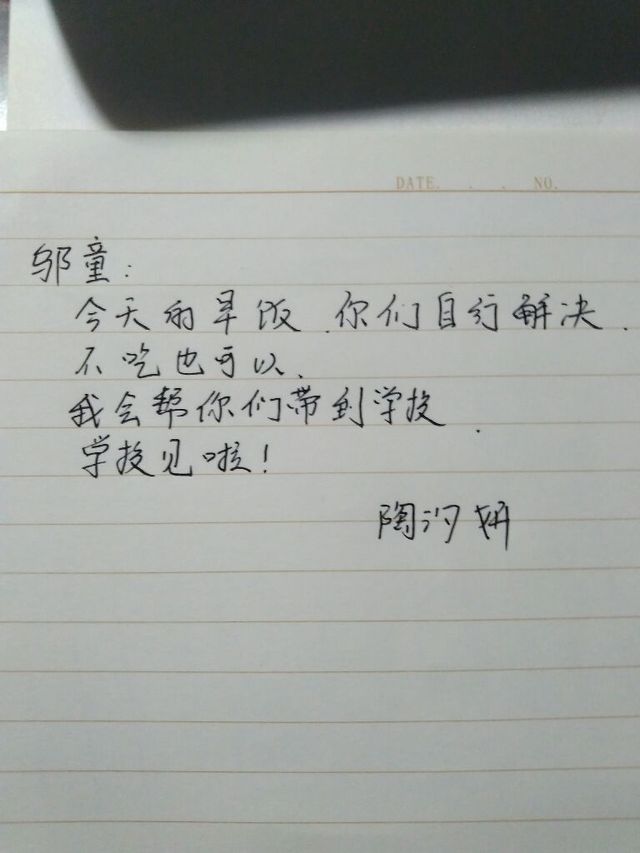 DATE. . . NO.
邬童：
今天的早饭.你们自行解决.
不吃也可以.
我会帮你们带到学校.
学校见啦！
陶汐妍